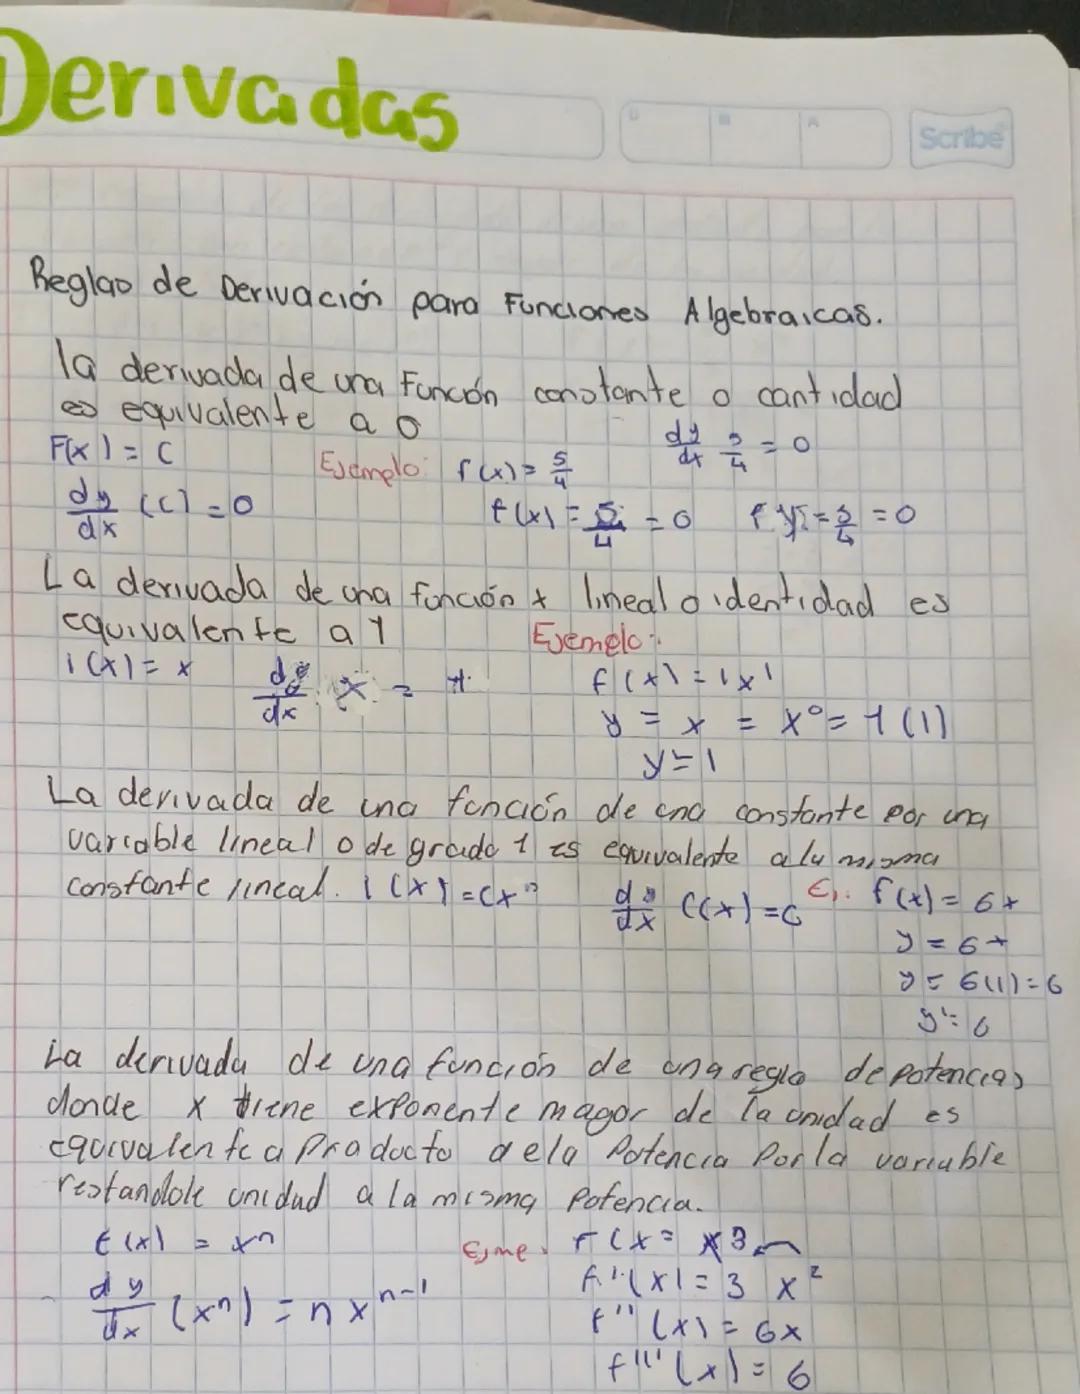 Derivadas
Scribe
Reglas de Derivación para Funciones Algebraicas.
la derivada de una Función constante o cantidad
es equivalente a 0
F(x) = C
Ejemplo: f(x) = 5/4
dy/dx 5/4 = 0
dy/dx (C) = 0
f(x) = 5/4 = 0
= 5/4 = 0
La derivada de una función x lineal o identidad es
equivalente a 1
Ejemplo:
f(x) = x
dy/dx x = 1
f(x) = 1x¹
y = x = x⁰ = 1(1)
y' = 1
La derivada de una función de una constante por una
variable lineal o de grado 1 es equivalente a la misma
constante lineal. f(x) = cx
dy/dx c(x) = c
Ej. f(x) = 6x
y = 6x
y = 6(1) = 6
y' = 6
La derivada de una función de una regla de potencias
donde x tiene exponente magor de la unidad es
equivalente a Producto de la Potencia Por la variable
restandole unidad a la misma Potencia.
f(x) = xⁿ
Ejme. F(x = x3
dy/dx (xⁿ) = nxⁿ⁻¹
f'(x) = 3x²
f''(x) = 6x
f'''(x) = 6